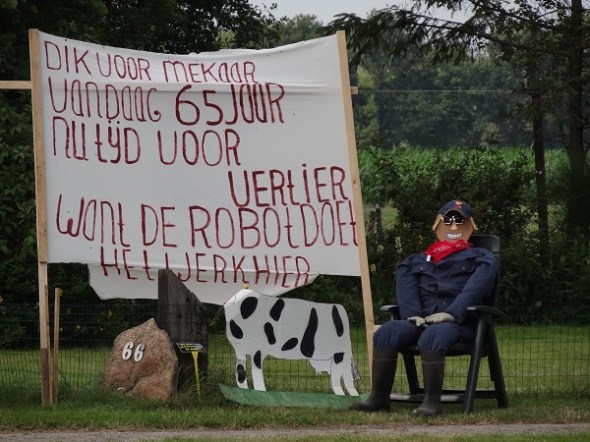 DIK VOOR MEKAAR
VANDAAG 65 JAAR
NU tijD VOOR
VERtIER
WANt DE ROBOt DOEt
HEt WERK HIER
66